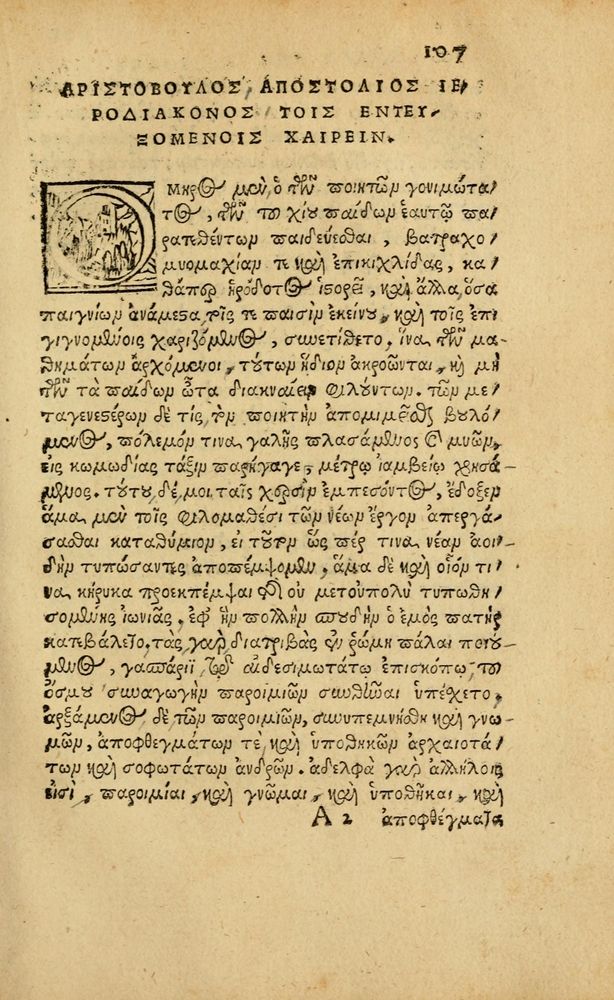 107
ΑΡΙΣΤΟΒΟΥΛΟΣ, ΑΠΟΣΤΟΛΙΟΣ ΙΕ
ΡΟΔΙΑΚΟΝΟΣ ΤΟΙΣ ΕΝΤΕΥ
ΞΟΜΕΝΟΙΣ ΧΑΙΡΕΙΝ.
Ομηρος μὲν ὁ τῶν ποιητῶν γονιμώτα
τος, τῶν τοῦ χίου παίδων ἑαυτῷ πα
ρατεθέντων παιδεύεσθαι, βατραχο
μυομαχίαν τε καὶ ἐπικιχλίδας, κα
θάπερ ἡρόδοτος ἱστορεῖ, καὶ ἄλλα, ὅσα
παιγνίων ἀνάμεστα τοῖς τε παισὶν ἐκείνου, καὶ τοῖς ἐπι
γιγνομένοις χαριζόμενος, συνετίθετο, ἵνα τῶν μα
θημάτων ἀρχόμενοι, τούτων ἥδιον ἀκροῶνται, καὶ μὴ
τῶν τὰ παίδων ὦτα διακναίειν φιλούντων. τῶν με
ταγενεστέρων δὲ τίς, τὸν ποιητὴν ἀπομιμεῖσθαι βουλό
μενος, πόλεμόν τινα γαλῆς πλασάμενος καὶ μυῶν,
εἰς κωμωδίας τάξιν παρήγαγε, μέτρῳ ἰαμβείῳ χρησά
μενος. τούτου, δέ, μοι ταῖς χερσὶν ἐμπεσόντος, ἔδοξεν
ἅμα μὲν τοῖς φιλομαθέσι τῶν νέων ἔργον ἀπεργά
σασθαι καταθύμιον, εἰ τοῦτον ὥς πέρ τινα νέαν ἀοι
δὴν τυπώσαντες ἀποπέμψομεν, ἅμα δὲ καὶ οἷόν τι
να κήρυκα προεκπέμψαι τῆς οὐ μετουπολὺ τυπωθη
σομένης ἰωνιᾶς. ἐφ᾽ ἣν πολλὴν σπουδὴν ὁ ἐμὸς πατὴρ
κατεβάλετο. τὰς γὰρ διατριβὰς ἐν ῥώμῃ πάλαι ποιού
μενος, γασπάρῳ τῷ αἰδεσιμωτάτῳ ἐπισκόπῳ, τοῦ
ὄσμου συναγωγὴν παροιμιῶν συνθεῖναι ὑπέσχετο.
ἀρξάμενος δὲ τῶν παροιμιῶν, συνυπεμνήσθη καὶ γνω
μῶν, ἀποφθεγμάτων τὲ, καὶ ὑποθηκῶν ἀρχαιοτά
των καὶ σοφωτάτων ἀνδρῶν. ἀδελφὰ γὰρ ἀλλήλοις
εἰσὶ, παροιμίαι, καὶ γνῶμαι, καὶ ὑποθῆκαι, καὶ
Α 2 ἀποφθέγματα